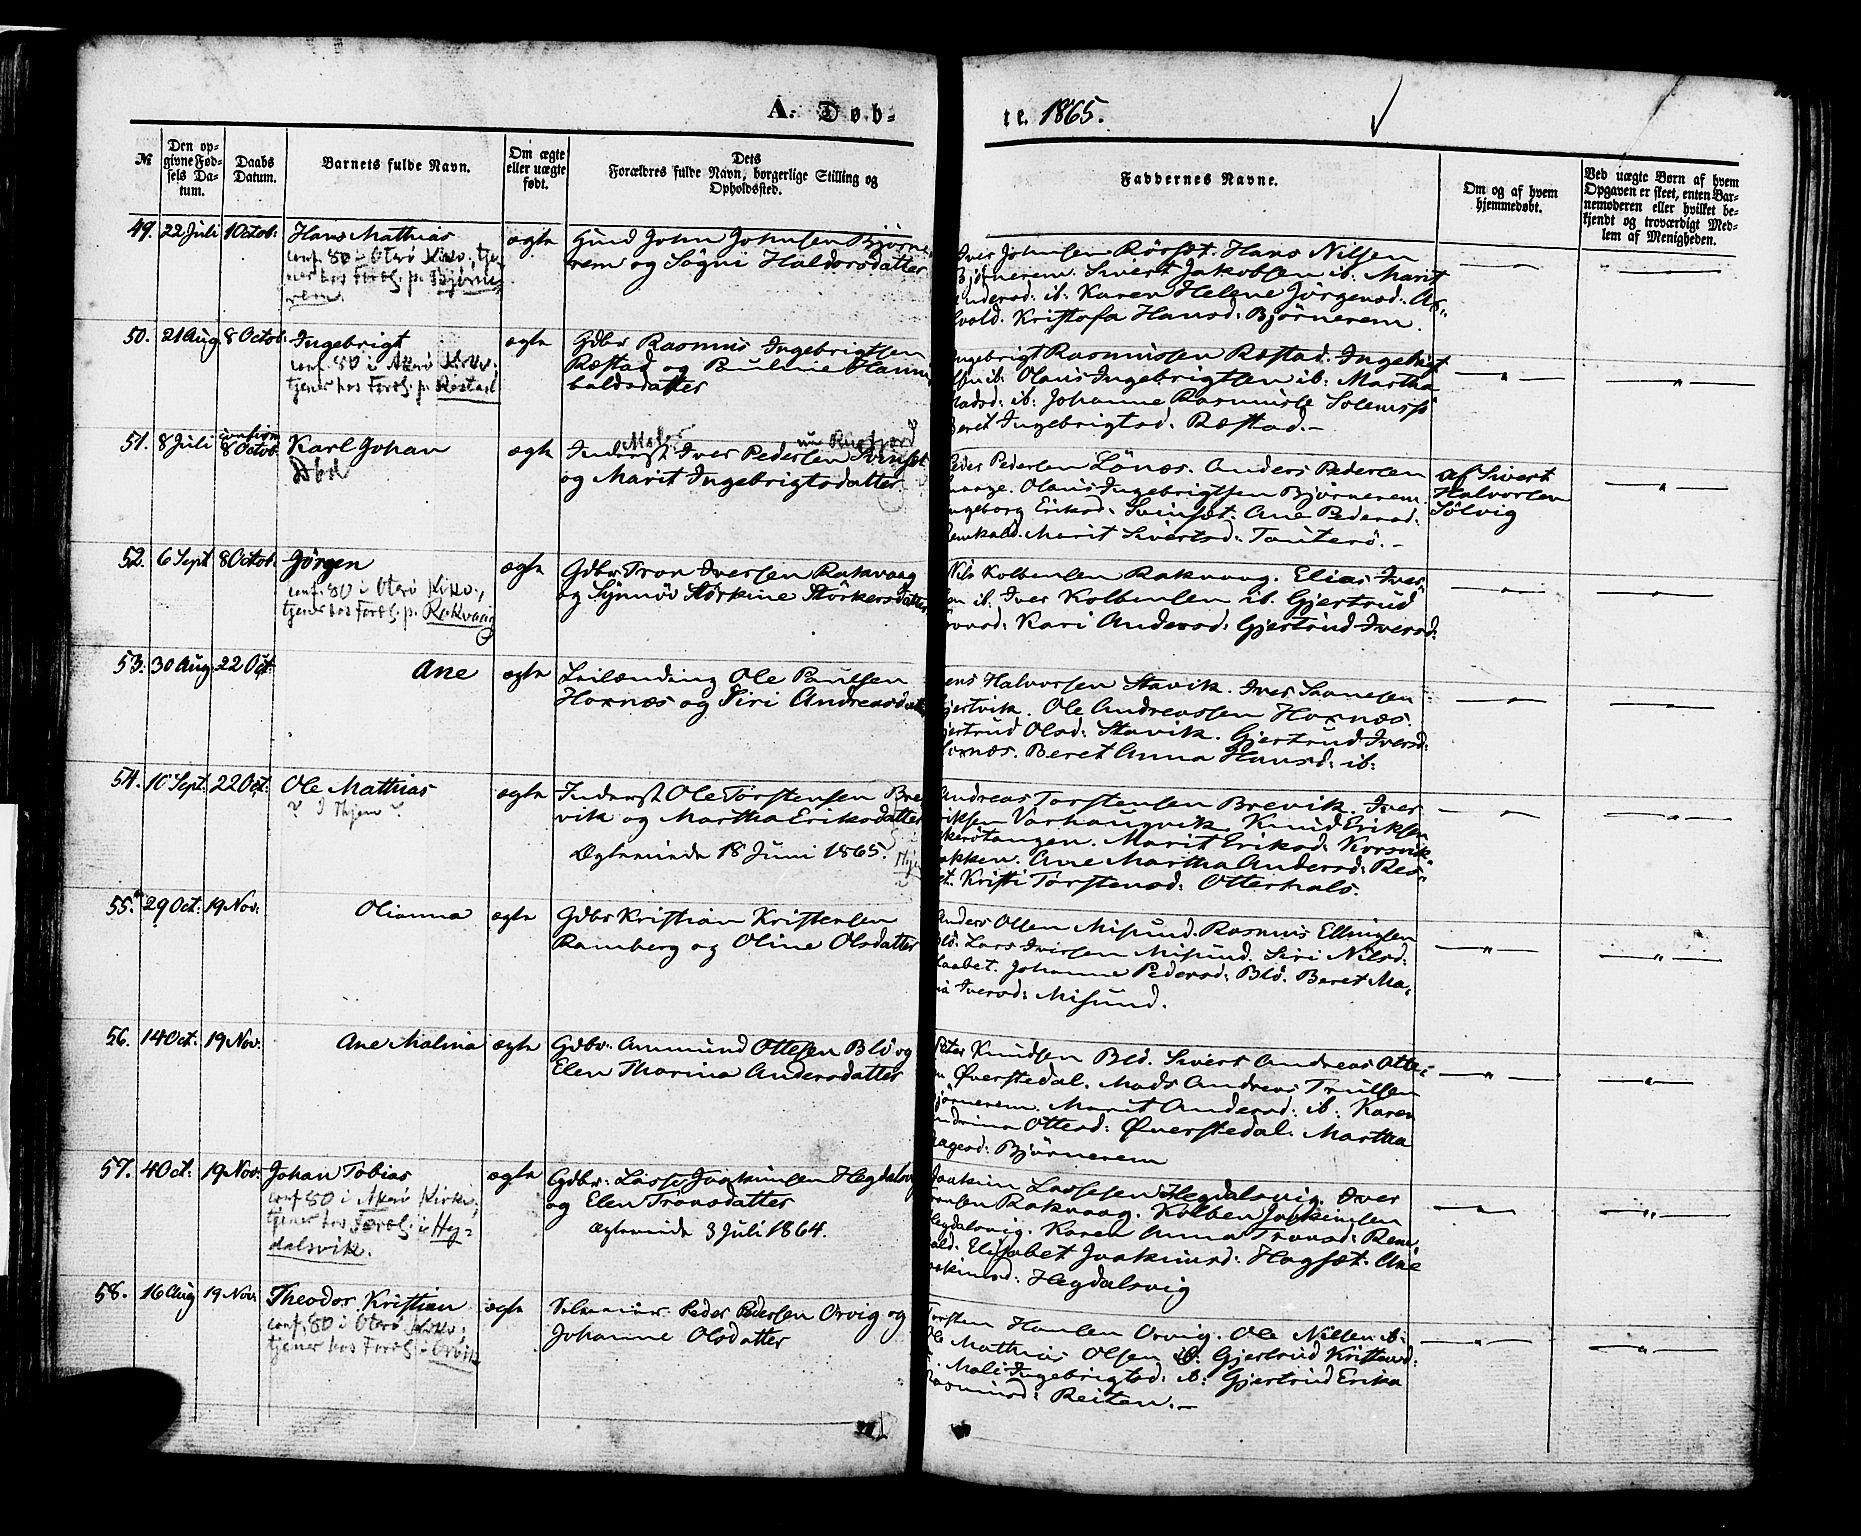 A. Døb-
te. 1865.
№
Den opgivne Fødsels Datum.
Daabs Datum.
Barnets fulde Navn.
Om ægte eller uægte født.
Dets Forældres fulde Navn, borgerlige Stilling og Opholdssted.
Faddernes Navne.
Om og af hvem hjemmedøbt.
Ved uægte Børn af hvem Opgaven er skeet, enten Barnemoderen eller hvilket bekjendt og troværdigt Medlem af Menigheden.
49. 22 Juli 1 Octob: Hans Mathias ægte
conf. 80 i Oterø Kirke, tje
ner hos Foræl: p. Bjørne
rem.
Gmd John Johnsen Bjørne
rem og Sögni Haldorsdatter
Iver Johnsen Rörset. Hans Nilsen
Bjørnerem. Sivert Jakobsen ib: Marit
Andersd: ib: Karen Helene Jörgensd: Or-
vold. Kristofa Hansd: Bjørnerem.
50. 21 Aug 8 Octob: Ingebrigt ægte
conf. 80 i Akerø Kirke;
tjener hos Foræl: p. Røstad
Gdbr Rasmus Ingebrigtsen
Ræstad og Pauline Hanni
baldsdatter
Ingebrigt Rasmussen Ræstad. Ingebrigt
Olsen ib: Olaus Ingebrigtsen ib: Martha
Madsd: ib: Johanne Rasmusd: Solemss
Beret Ingebrigtsd: Ræstad.—
51. 8 Juli 8 Octob: Karl Johan ægte
Död
Inderst Iver Pedersen Svinset
og Marit Ingebrigtsdatter
Peder Pedersen Lönæs. Anders Pedersen
Olaus Ingebrigtsen Bjørnerem.
Ingeborg Eriksd: Svinset. Ane Pedersd:
Marit Sivertsd: Tauterö.—
af Sivert
Halvorsen
Sölvig
52. 6 Sept 8 Octob: Jörgen ægte
conf. 80 i Oterø Kirke,
tjener hos Foræl: p. Rakvaag
Gdbr Tron Iversen Rakvaag
og Synnöv Störkine Störkersdatter
Nils Kolbensen Rakvaag. Elias Iver
sen ib: Iver Kolbensen ib. Gjertrud
Tronsd: Kari Andersd: Gjertrud Iversd:
53. 30 Aug: 22 Oct: Ane ægte
Leilænding Ole Paulsen
Hoxnæs og Siri Andreasdatter
Jens Halvorsen Stavik. Iver
Gjertvik. Ole Andreassen Hoxnæs.
Gjertrud Olsd: Stavik. Gjertrud Iversd:
Hoxnæs. Beret Anna Hansd: ib:
54. 10 Sept: 22 Oct: Ole Mathias ægte
Inderst Ole Torstensen Bre
vik og Martha Eriksdatter
Ægteviede 18 Juni 1865.
Andreas Torstensen Brevik. Iver
Eriksen Varhaugvik. Knud Eriksen
Akerötangen. Marit Eriksd: Korsvik
bakken. Ane Martha Andersd: Rös-
et. Kristi Torstensd: Otterhals.
55. 29 Oct: 19 Nov: Olianna ægte
Gdbr Kristian Kristensen
Ramberg og Oline Olsdatter
Anders Olsen Misund. Rasmus Ellingsen
Blö. Lars Iversen Misund. Siri Nilsd:
Raabet. Johanne Pedersd: Blö. Beret Ma-
ria Iversd: Misund.
56. 14 Oct: 19 Nov: Ane Malina ægte
Gdbr: Ammund Ottesen Blö og
Elen Tharina Andersdatter
Peter Knudsen Blö. Sivert Andreas Otte-
sen Øverstedal. Mads Andreas Trulsen
Bjørnerem. Marit Andersd: ib: Karen
Andrina Ottesd: Øverstedal. Martha
Aagesd: Bjørnerem
57. 4 Oct: 19 Nov: Johan Tobias ægte
conf 80 i Akerø Kirke;
tjener hos Foræl: i Hy-
dalsvik.
Gdbr: Lasse Joakimsen Hegdalsvig
og Elen Tronsdatter
Ægteviede 3 Juli 1864.
Joakim Lassesen Hegdalsvig. Iver
Tronsen Rakvaag. Kolben Joakimsen
Hegdalsvig. Karen Anna Tronsd: Rem
vald. Elisabet Joakimsd: Hagset. Ane
Joakimsd: Hegdalsvig
58. 16 Aug 19 Nov: Theodor Kristian ægte
conf. 80 i Oterø Kirke;
tjener hos Foræl: i Orvik
Selveier Peder Pedersen Orvig og
Johanne Olsdatter
Torsten Hansen Orvig. Ole Nilsen ib:
Ole Mathias Olsen ib: Gjertrud Kristensd:
Mali Ingebrigtsd: ib: Gjertrud Erika
Rasmusd: Reiten.—